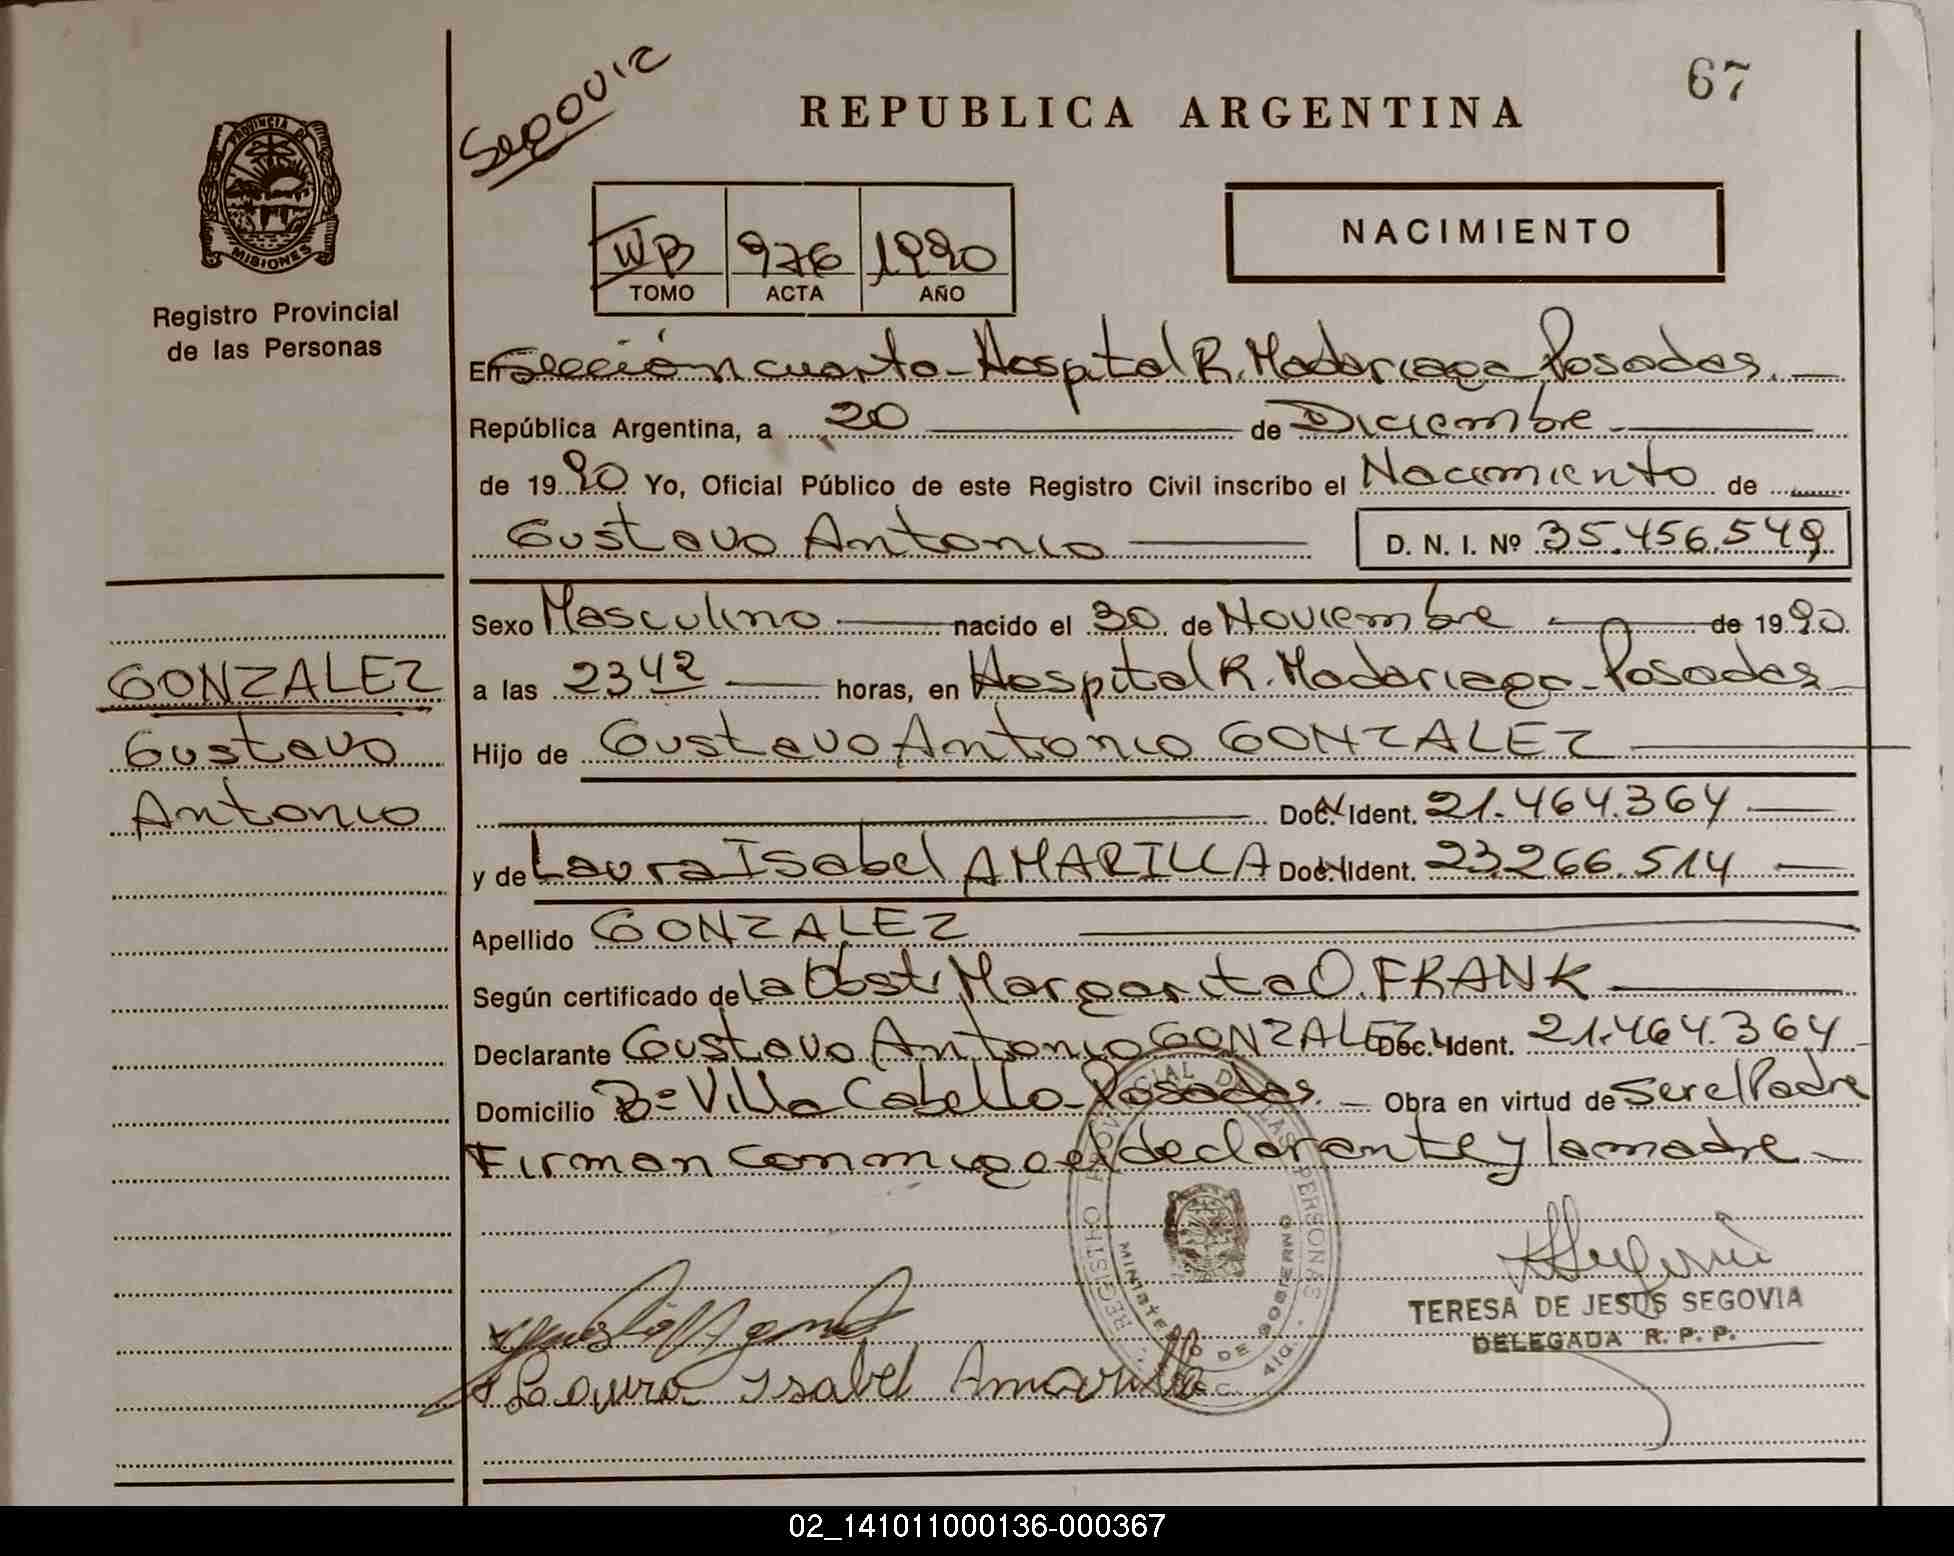 67
Segovia
REPUBLICA ARGENTINA
PROVINCIA DE
MISIONES
Registro Provincial
de las Personas
976 1990
TOMO ACTA AÑO
NACIMIENTO
En Sección cuarta - Hospital R. Madariaga Posadas. —
República Argentina, a 20 de Diciembre
de 1990 Yo, Oficial Público de este Registro Civil inscribo el Nacimiento de
Gustavo Antonio D. N. I. Nº 35.456.549
Sexo Masculino nacido el 30 de Noviembre de 1990.
a las 2342 horas, en Hospital R. Madariaga - Posadas
Hijo de Gustavo Antonio GONZALEZ
Doc. Ident. 21.464.364
y de Laura Isabel AMARILLA Doc. Ident. 23.266.514
Apellido GONZALEZ
Según certificado de la Obst. Margarita O. FRANK
Declarante Gustavo Antonio GONZALEZ Doc. Ident. 21.464.364
Domicilio Bº Villa Cabello - Posadas. — Obra en virtud de Ser el Padre
Firman conmigo el declarante y la madre
GONZALEZ
Gustavo
Antonio
REGISTRO PROVINCIAL DE LAS PERSONAS
MINISTERIO DE GOBIERNO
Laura Isabel Amarilla
TERESA DE JESUS SEGOVIA
DELEGADA R. P. P.
02_141011000136-000367